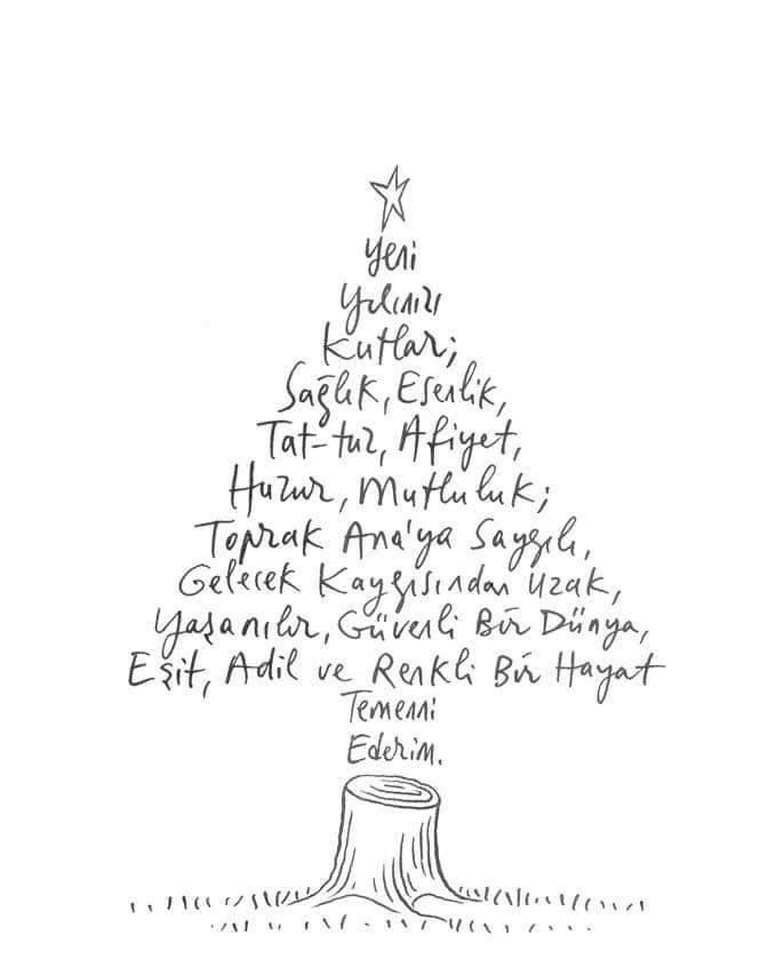 Yeni
Yılınızı
Kutlar;
Sağlık, Esenlik,
Tat-tuz, Afiyet,
Huzur, Mutluluk;
Toprak Ana'ya Saygılı,
Gelecek Kaygısından Uzak,
Yaşanılır, Güvenli Bir Dünya,
Eşit, Adil ve Renkli Bir Hayat
Temenni
Ederim.